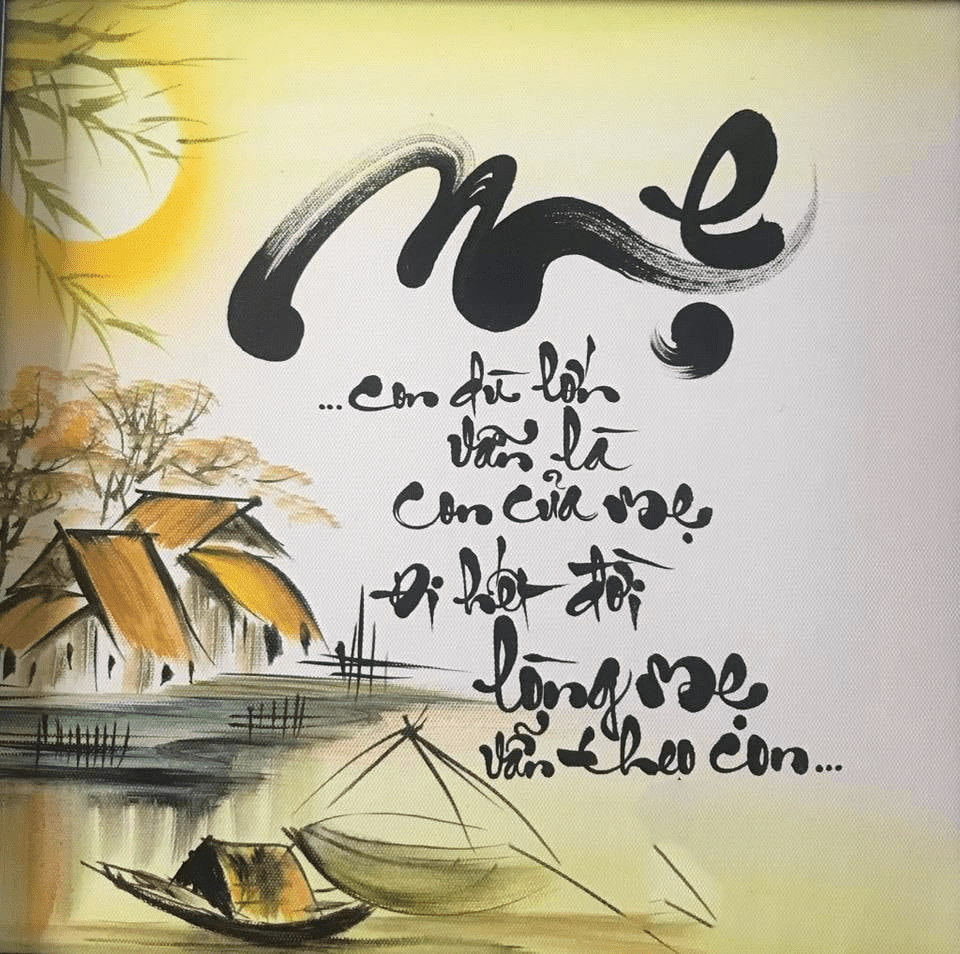 Mẹ
...con dù lớn
vẫn là
con của mẹ
Đi hết đời
lòng mẹ
vẫn theo con...